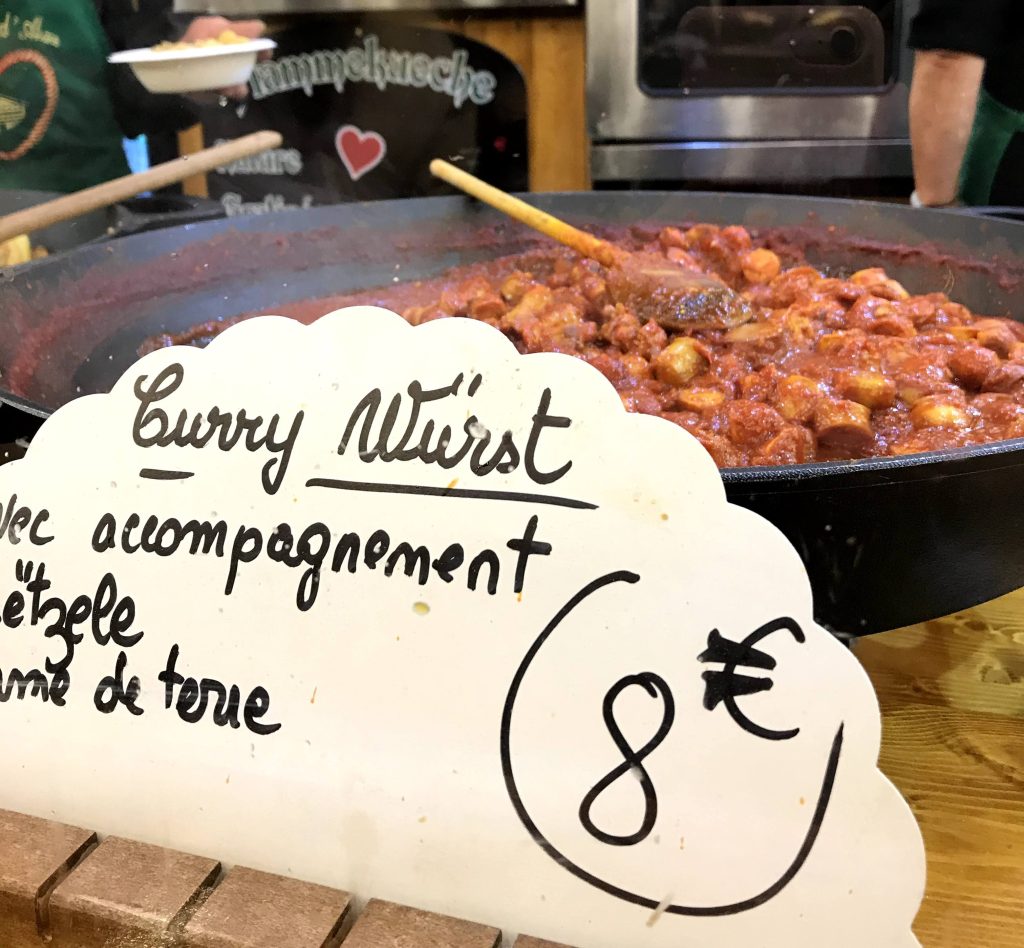 d'Alsa
Flammekueche
Curry Würst
avec accompagnement
ëtzele
me de terre
8 €